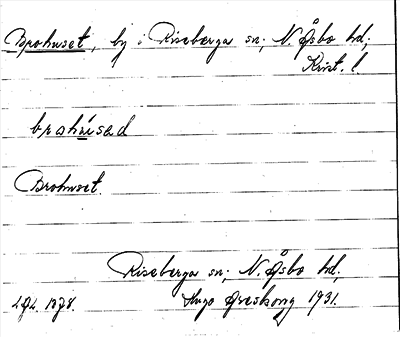 Brohuset, by i Riseberga sn; N. Åsbo hd;
Krist. l.
brohúsed
Brohuset.
Riseberga sn; N. Åsbo hd;
Hugo Areskoug 1931.